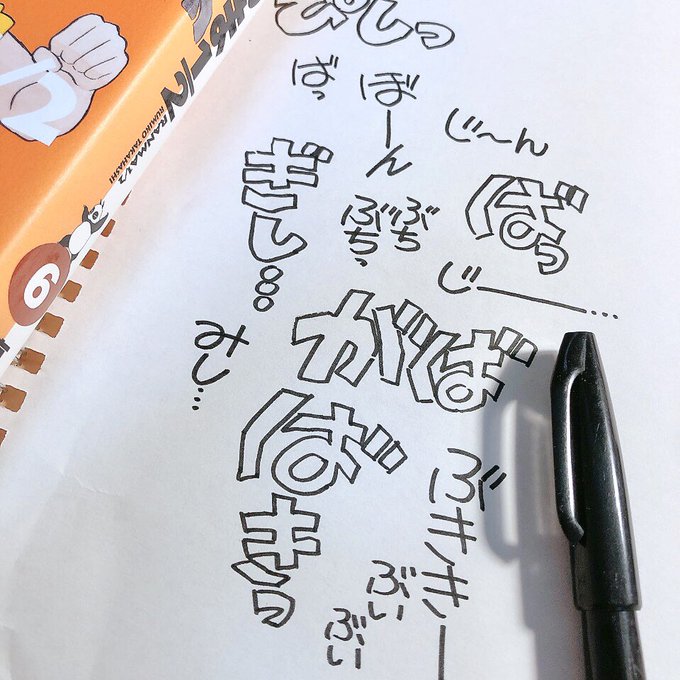 ぴしっ
ばっ
ぼーん
じ〜ん
ぎし…
ぶち
ぶちっ
ばっ
じー…
みし…
がば
ばきっ
ぶききー
ぶい
ぶい
RANMA 1/2
RUMIKO TAKAHASHI
6